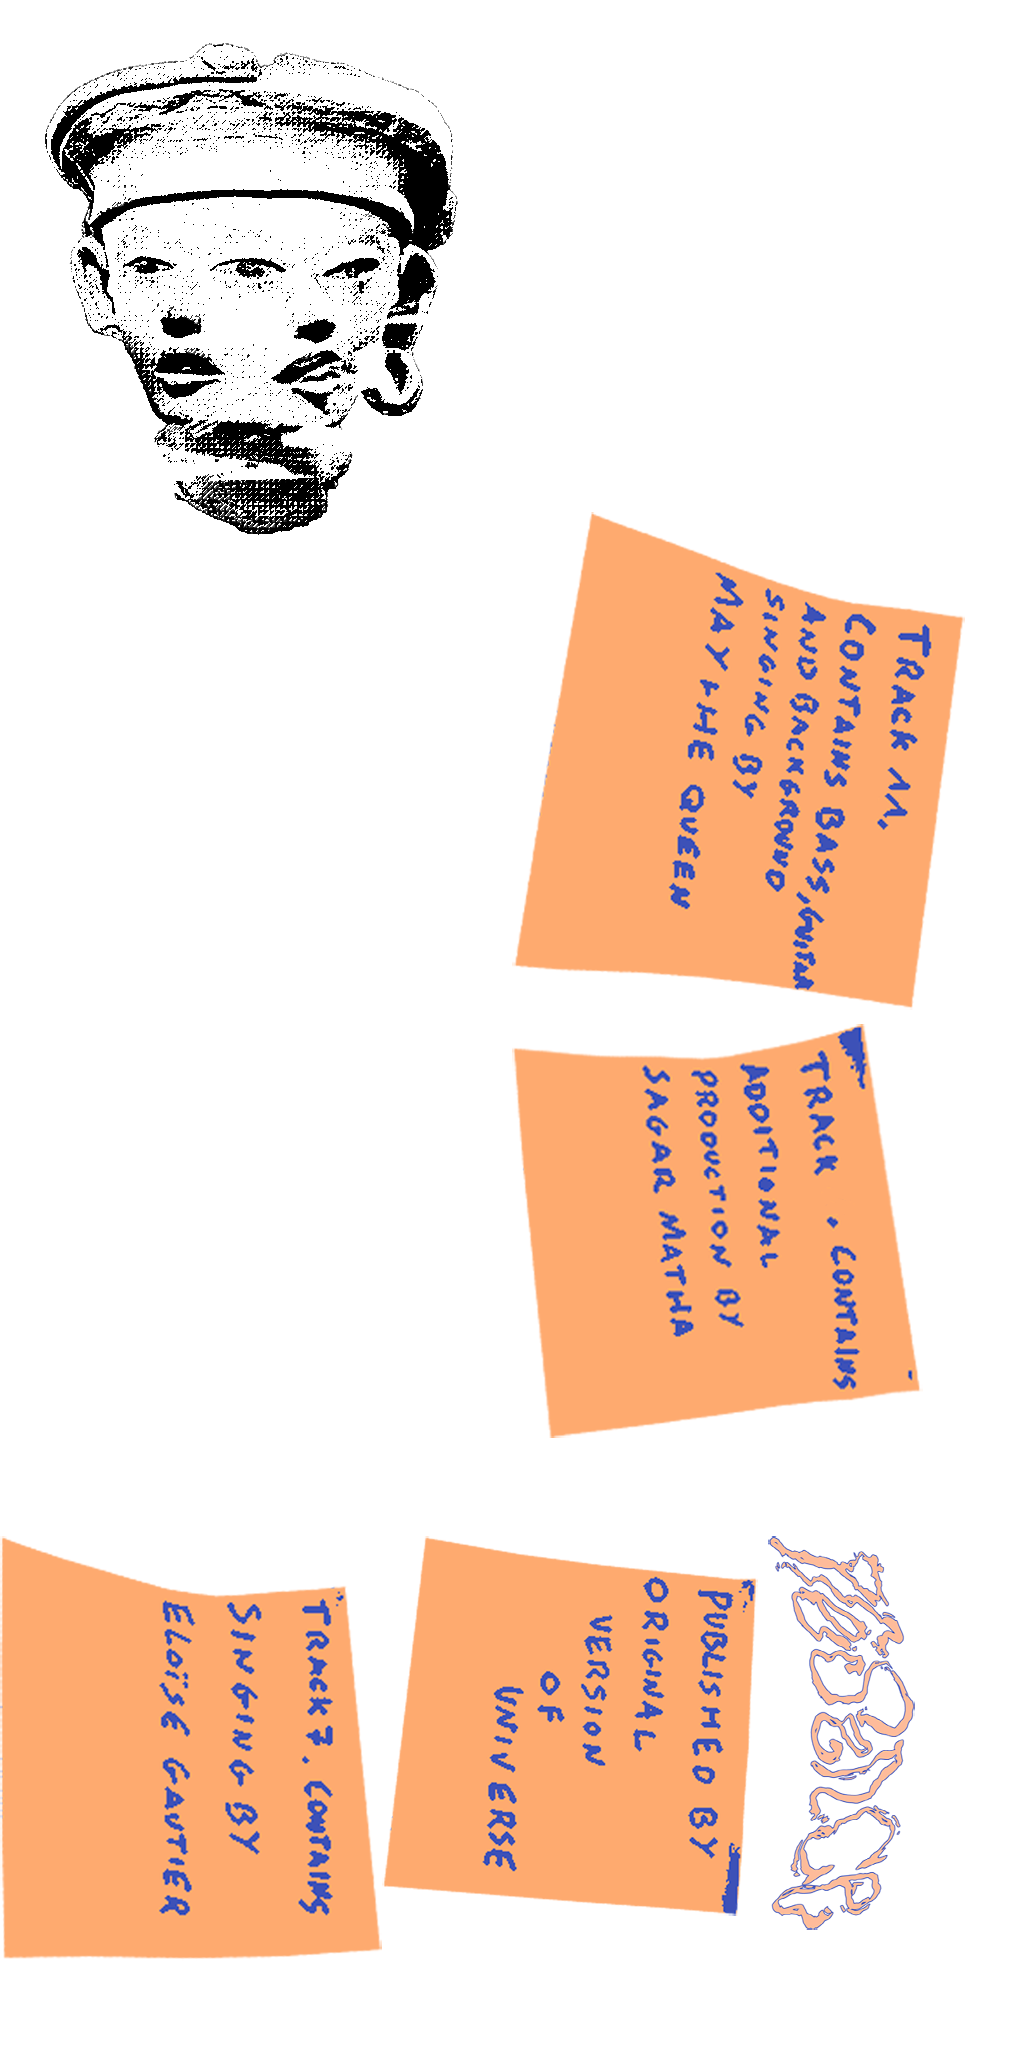 TRACK 11.
CONTAINS BASS, GUITAR
AND BACKGROUND
SINGING BY
MAY THE QUEEN
TRACK . CONTAINS
ADDITIONAL
PRODUCTION BY
SAGAR MATHA
PUBLISHED BY
ORIGINAL
VERSION
OF
UNIVERSE
TRACK 7. CONTAINS
SINGING BY
ELOÏSE GAUTIER